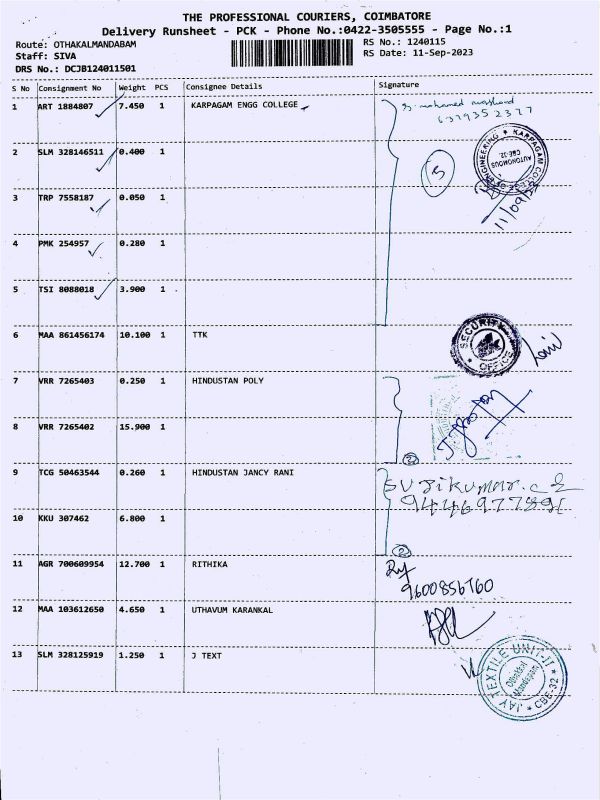 THE PROFESSIONAL COURIERS, COIMBATORE
Delivery Runsheet - PCK - Phone No.:0422-3505555 - Page No.:1
Route: OTHAKALMANDABAM
RS No.: 1240115
Staff: SIVA
RS Date: 11-Sep-2023
DRS No.: DCJB124011501
S No Consignment No Weight PCS Consignee Details Signature
1 ART 1884807 7.450 1 KARPAGAM ENGG COLLEGE
mohamed
6379352377
2 SLM 328146511 0.400 1
5
KARPAGAM COLLEGE OF ENGINEERING
AUTONOMOUS
CBE-32.
3 TRP 7558187 0.050 1
11/09/23
4 PMK 254957 0.280 1
5 TSI 8088018 3.900 1
6 MAA 861456174 10.100 1 TTK
SECURITY OFFICE
7 VRR 7265403 0.250 1 HINDUSTAN POLY
8 VRR 7265402 15.900 1
2
9 TCG 50463544 0.260 1 HINDUSTAN JANCY RANI
10 KKU 307462 6.800 1
2
11 AGR 700609954 12.700 1 RITHIKA
9600856760
12 MAA 103612650 4.650 1 UTHAVUM KARANKAL
13 SLM 328125919 1.250 1 J TEXT
JAY TEXTILE UNIT-II
CBE-32